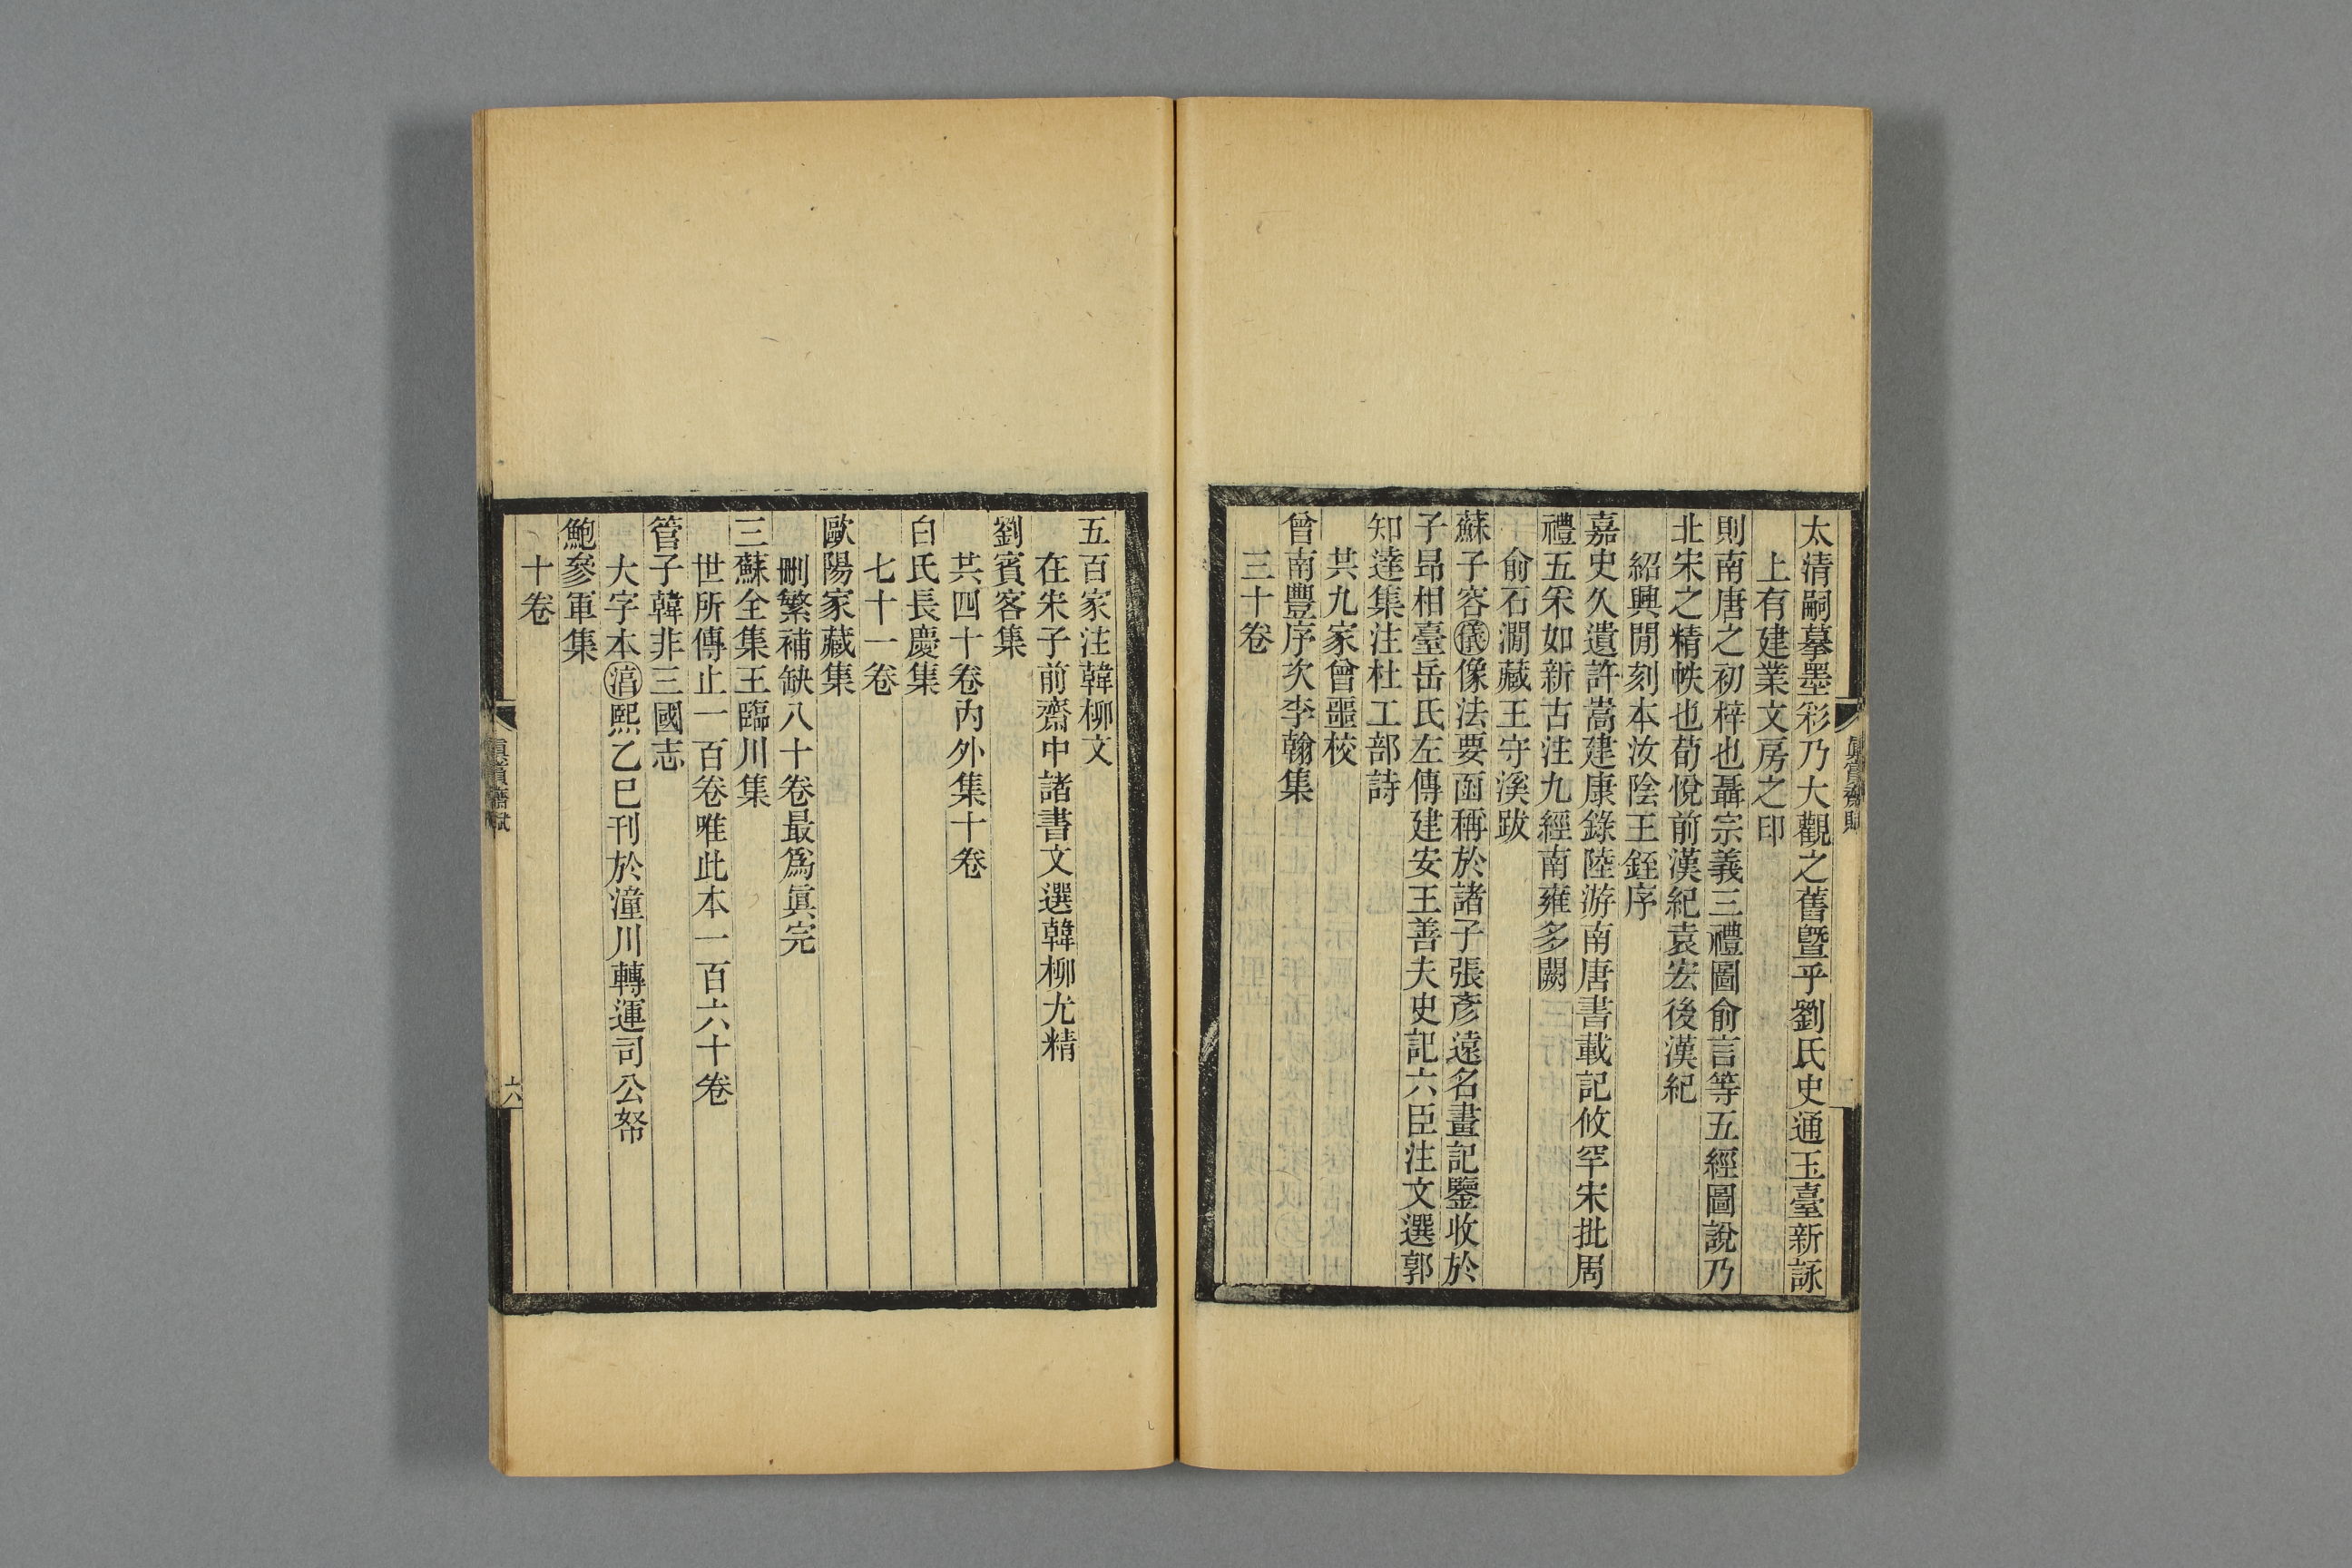 太清嗣摹墨彩乃大觀之舊曁乎劉氏史通玉臺新詠
上有建業文房之印
則南唐之初梓也聶宗義三禮圖俞言等五經圖說乃
北宋之精帙也荀悅前漢紀袁宏後漢紀
紹興閒刻本汝陰王銍序
嘉史久遺許嵩建康錄陸游南唐書載記攸罕宋批周
禮五采如新古注九經南雍多闕
俞石澗藏王守溪跋
蘇子容儀像法要函稱於諸子張彥遠名畫記鑒收於
子昻相臺岳氏左傳建安王善夫史記六臣注文選郭
知達集注杜工部詩
共九家曾噩校
曾南豐序次李翰集
三十卷
眞賞齋賦
五百家注韓柳文
在朱子前齋中諸書文選韓柳尤精
劉賓客集
共四十卷內外集十卷
白氏長慶集
七十一卷
歐陽家藏集
刪繁補缺八十卷最爲眞完
三蘇全集王臨川集
世所傳止一百卷唯此本一百六十卷
管子韓非三國志
大字本湻熙乙巳刊於潼川轉運司公帑
鮑參軍集
十卷
眞賞齋賦
六